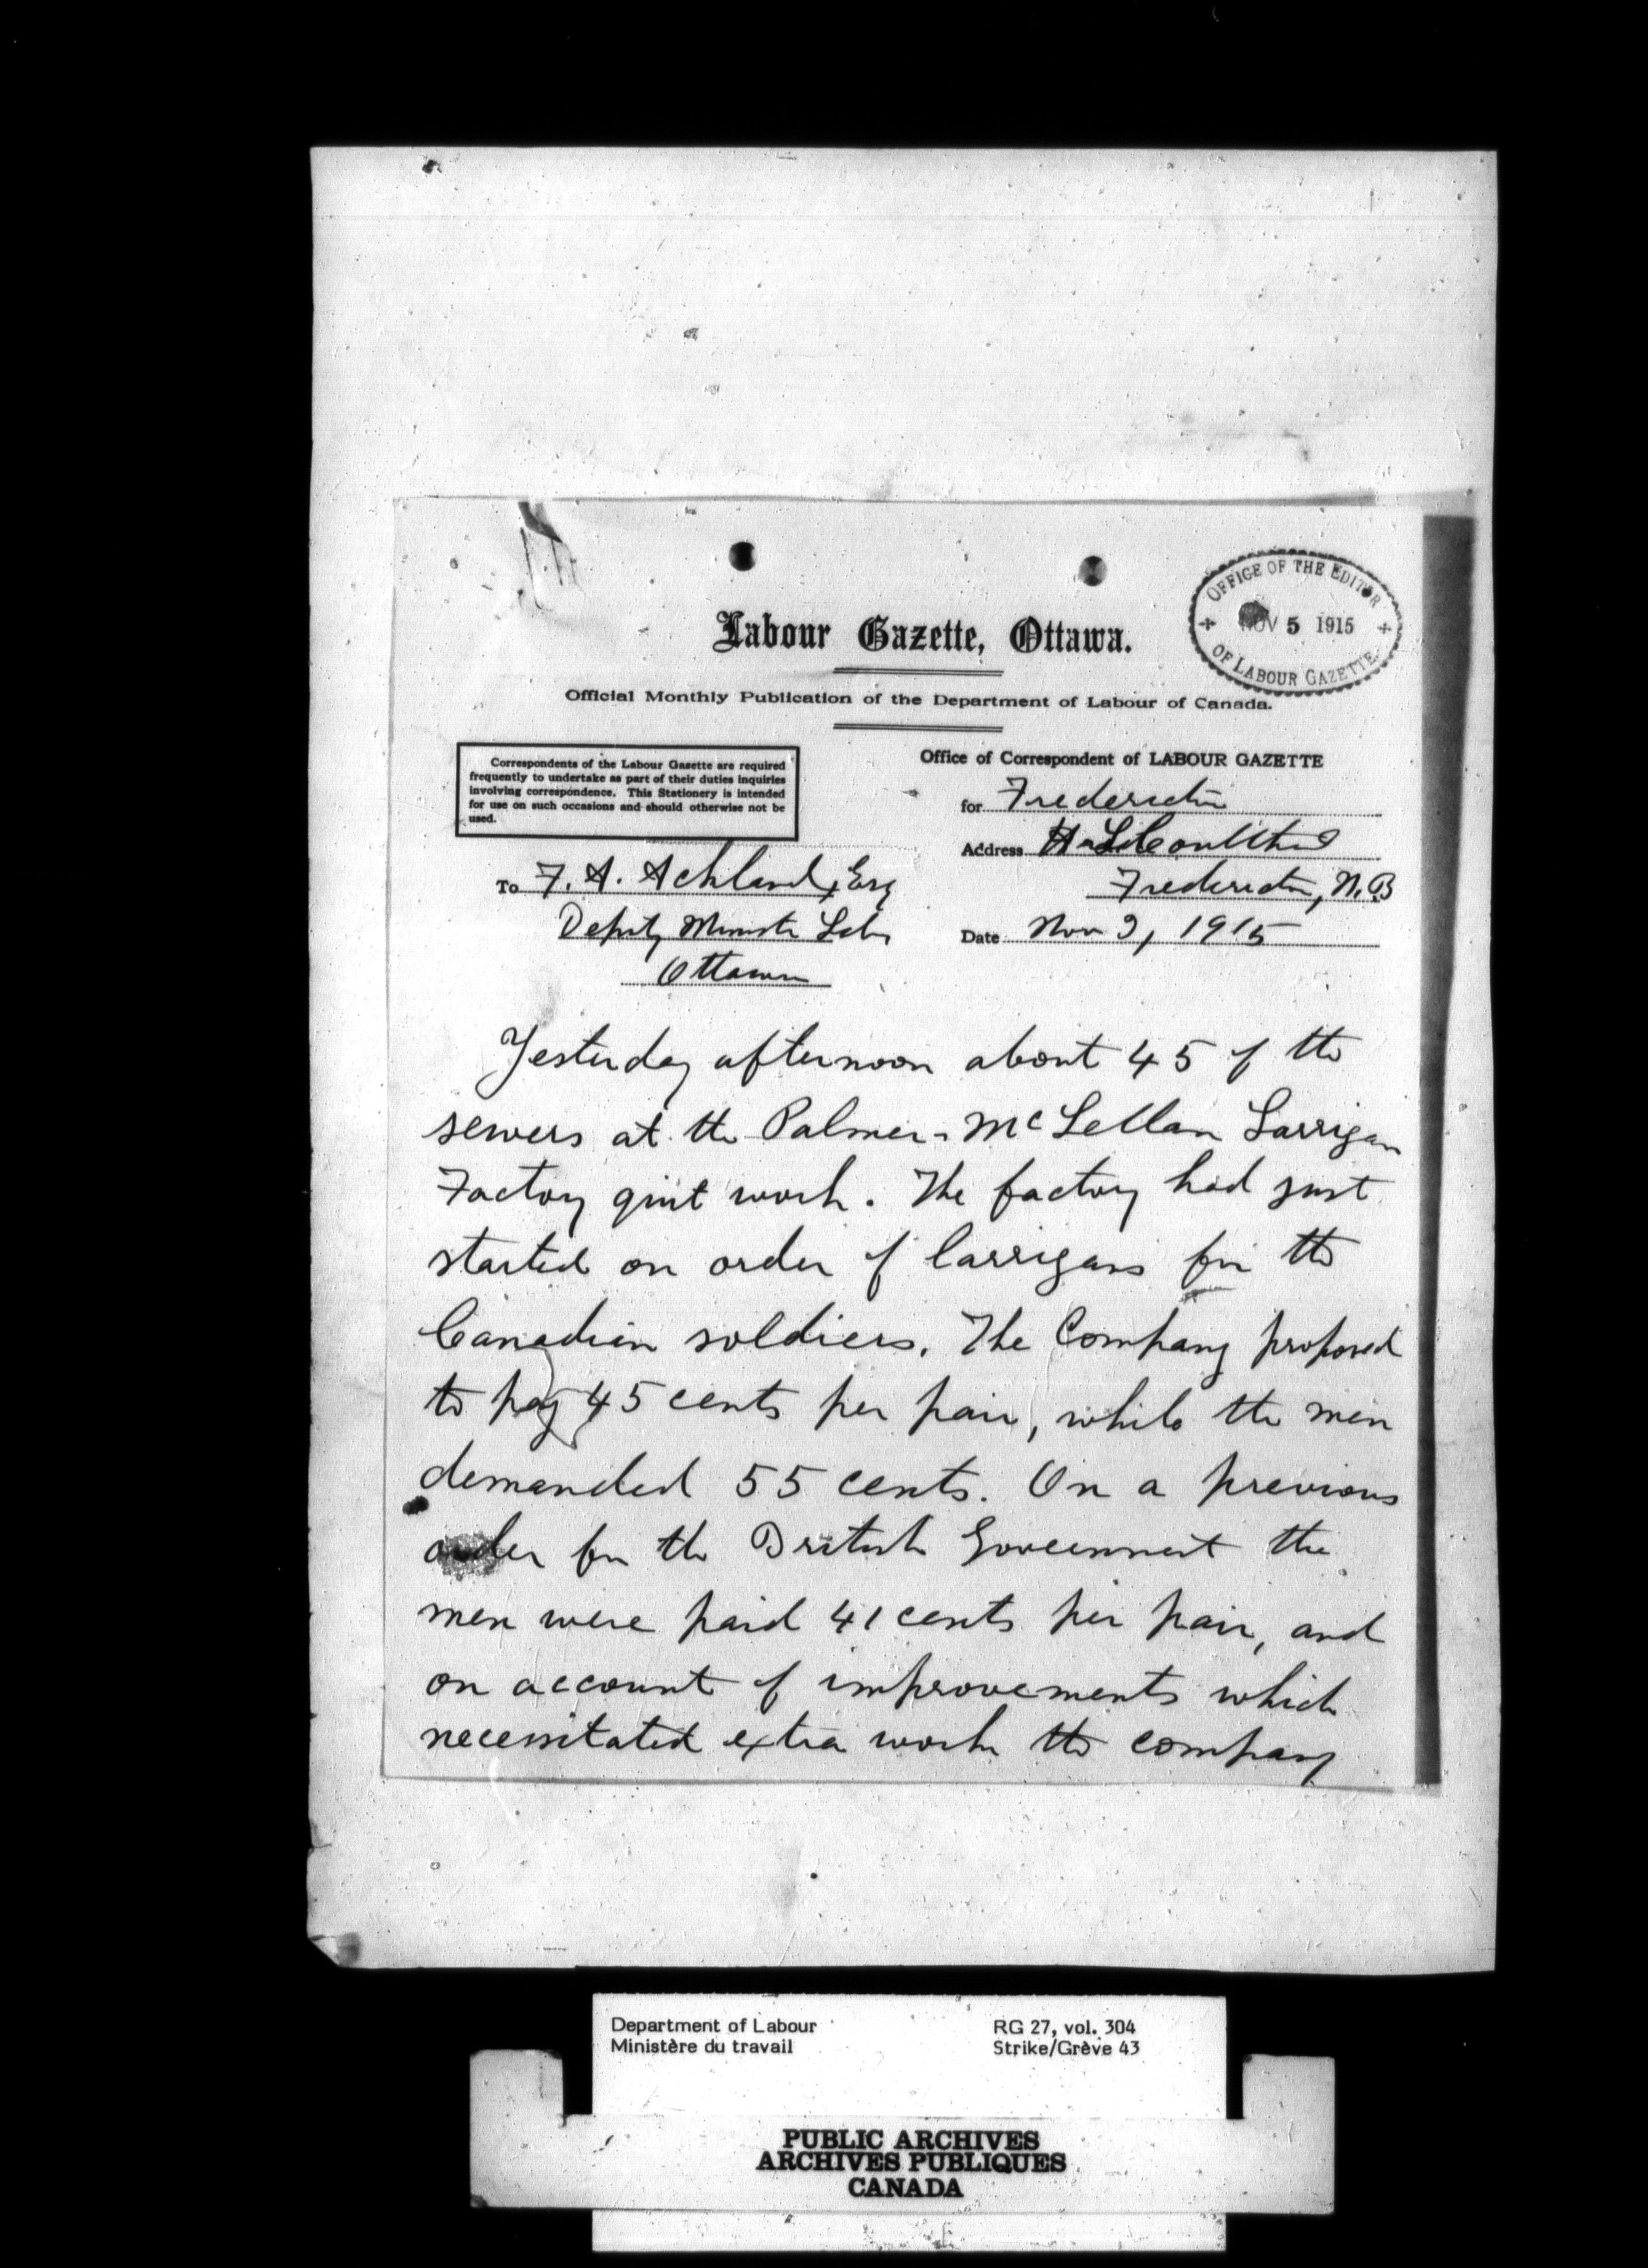 OFFICE OF THE EDITOR
NOV 5 1915
OF LABOUR GAZETTE
Labour Gazette, Ottawa.
Official Monthly Publication of the Department of Labour of Canada.
Correspondents of the Labour Gazette are required
frequently to undertake as part of their duties inquiries
involving correspondence. This Stationery is intended
for use on such occasions and should otherwise not be
used.
Office of Correspondent of LABOUR GAZETTE
for Fredericton
Address
Fredericton, N.B
Date Nov 3, 1915
To F. A. Ackland, Esq
Deputy Minister Labor
Ottawa
Yesterday afternoon about 45 of the
sewers at the Palmer-McLellan Larrigan
Factory quit work. The factory had just
started on order of larrigans for the
Canadian soldiers. The Company proposed
to pay 45 cents per pair, while the men
demanded 55 cents. On a previous
order for the British Government the
men were paid 41 cents per pair, and
on account of improvements which
necessitated extra work the company
Department of Labour
Ministère du travail
RG 27, vol. 304
Strike/Grève 43
PUBLIC ARCHIVES
ARCHIVES PUBLIQUES
CANADA